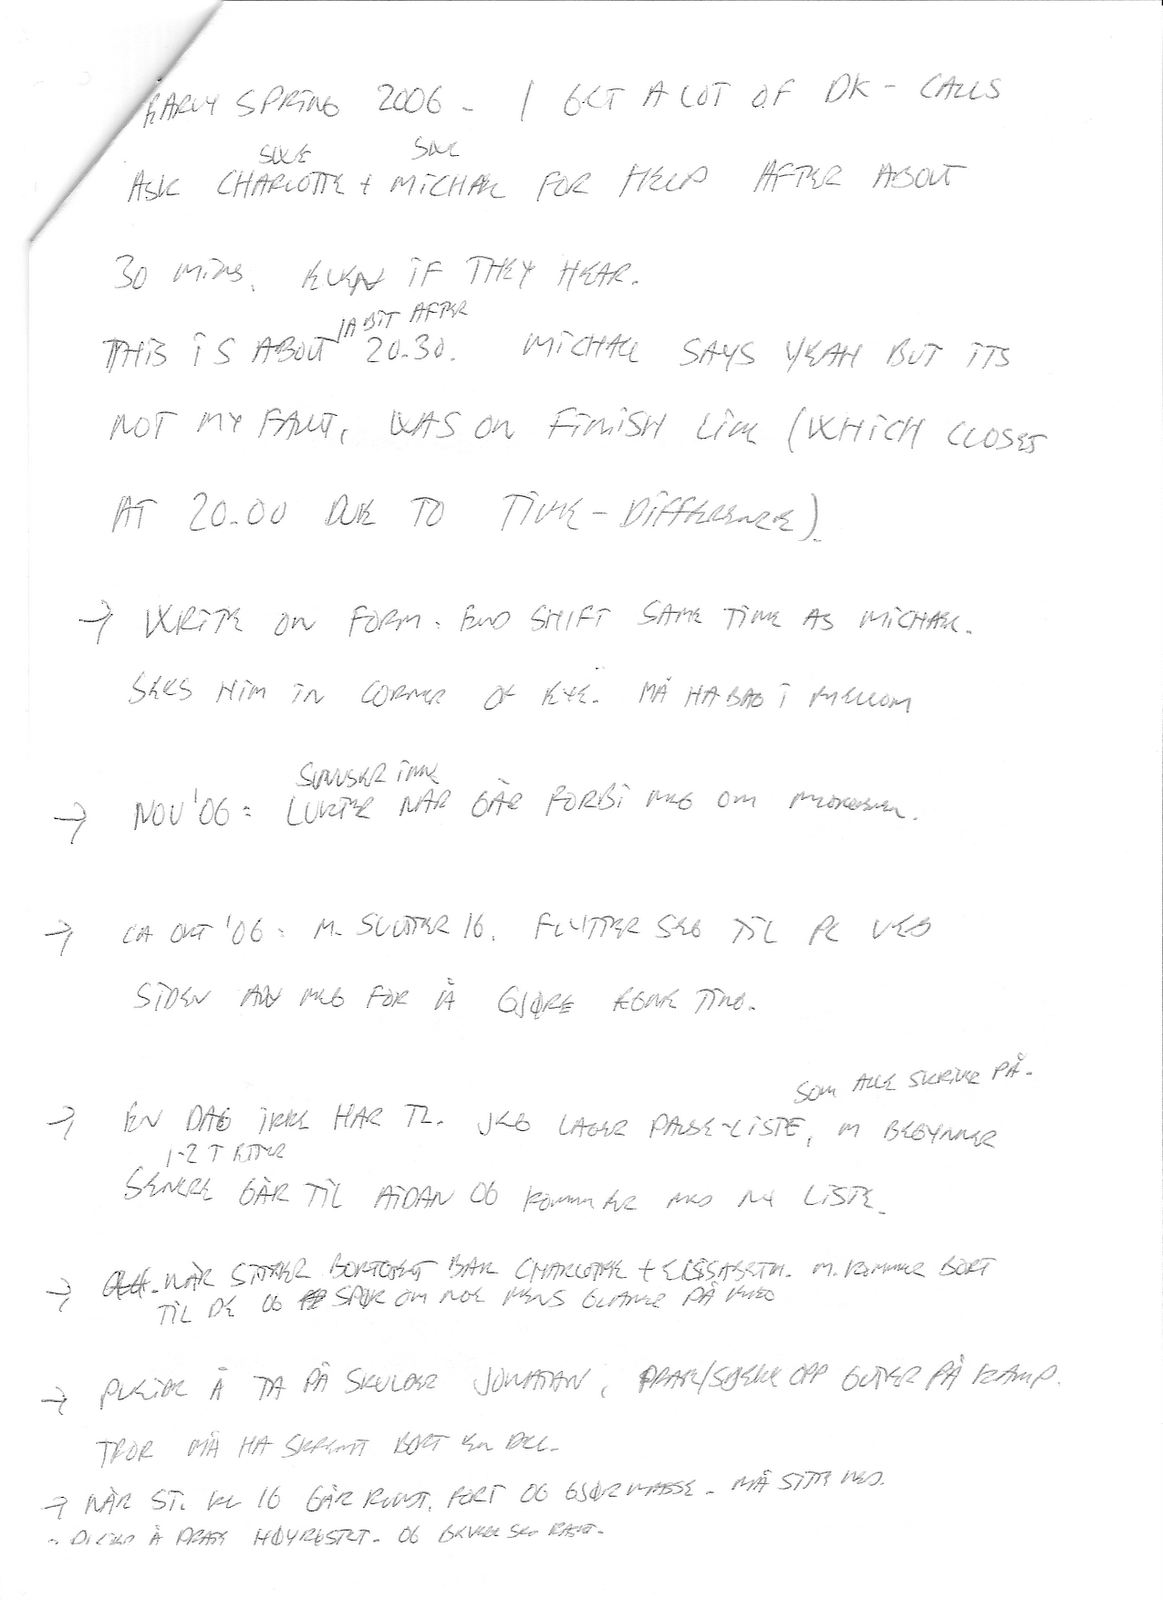 EARLY SPRING 2006 - I GET A LOT OF DK - CALLS
ASK CHARLOTTE + MICHAEL FOR HELP AFTER ABOUT
30 MINS. EVEN IF THEY HEAR.
/A BIT AFTER
THIS IS ABOUT 20.30. MICHAEL SAYS YEAH BUT ITS
NOT MY FAULT, WAS ON FINISH LINE (WHICH CLOSES
AT 20.00 DUE TO TIME-DIFFERENCE).
→ WRITE ON FORM. END SHIFT SAME TIME AS MICHAEL.
SEES HIM IN CORNER OF EYE. MÅ HA BAG I MELLOM
→ NOV '06: LUKTER NÅR GÅR FORBI MEG OM
→ CA OKT '06: M. SLUTTER 16. FLYTTER SEG TIL PC VED
SIDEN AV MEG FOR Å GJØRE EGNE TING.
SOM ALLE SKRIVER PÅ.
→ EN DAG IKKE HAR TL. JEG LAGER PAUSE-LISTE, M BEGYNNER
1-2 T ETTER
SENERE GÅR TIL AIDAN OG KOMMER MED NY LISTE.
→ NÅR SITTER BORTGJEMT BAK CHARLOTTE + ELISABETH. M. KOMMER BORT
TIL DE OG SPØR OM NOE MENS GLANER PÅ MEG
→ PLEIER Å TA PÅ SKULDER JONATAN, PRAK/SJEKKE OPP GUTTER PÅ KAMP.
TROR MÅ HA SKREMT BORT EN DEL.
→ NÅR ST. KL 16 GÅR RUNDT, FORT OG GJØR MASSE. MÅ SITTE NED.
- PLEIER Å PRATE HØYRØSTET. OG